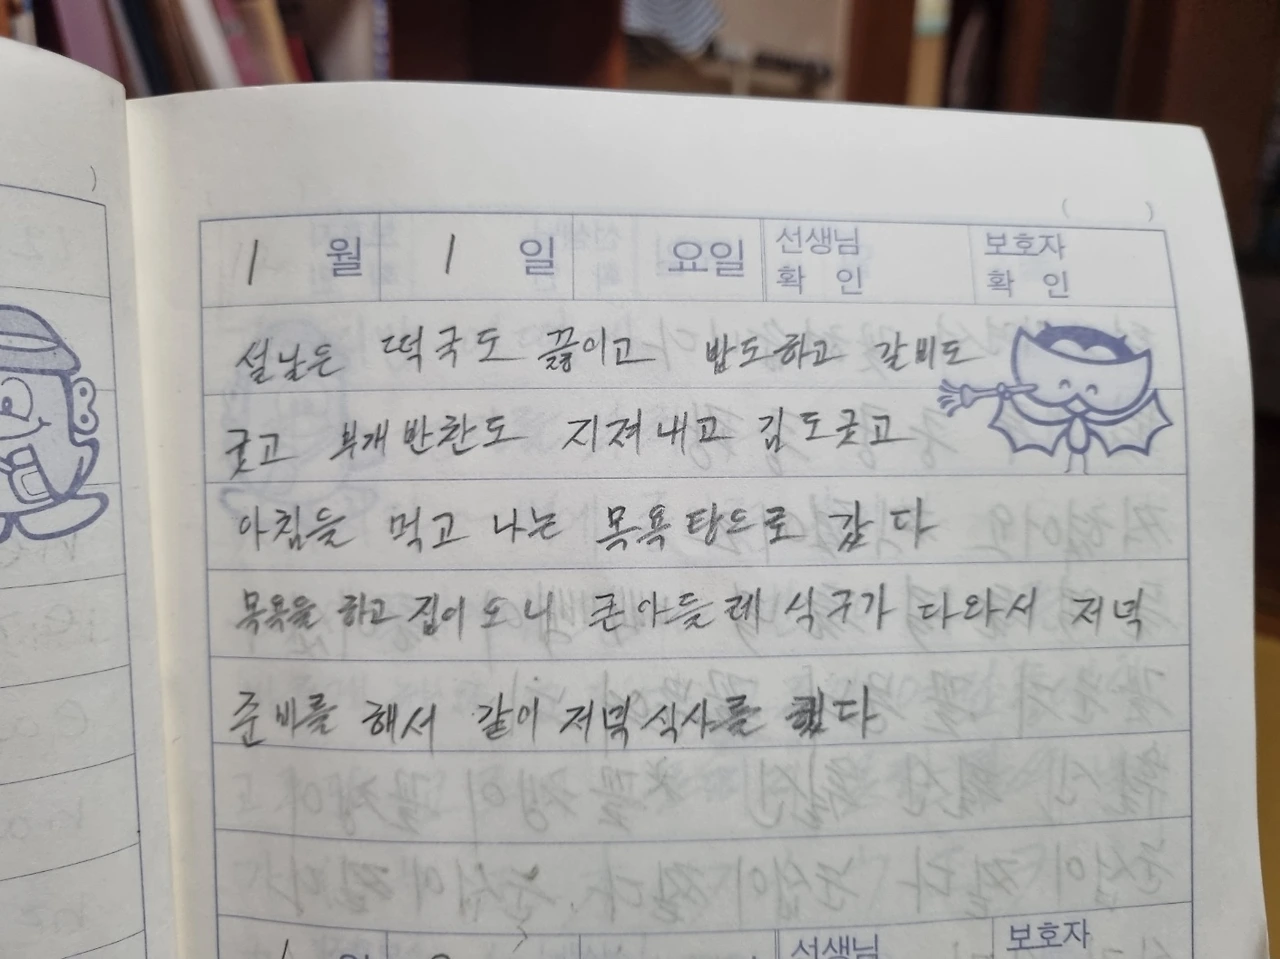 ( )
)
1 월 1 일 요일 선생님 확 인 보호자 확 인
설날은 떡국도 끓이고 밥도하고 갈비도
굿고 부개반찬도 지져내고 김도굿고
아침들 먹고 나는 목욕탕으로 갔다
목욕을 하고 집이 오니 큰아들레 식구가 다와서 저녁
준비를 해서 같이 저녁식사를 했다
선생님 보호자